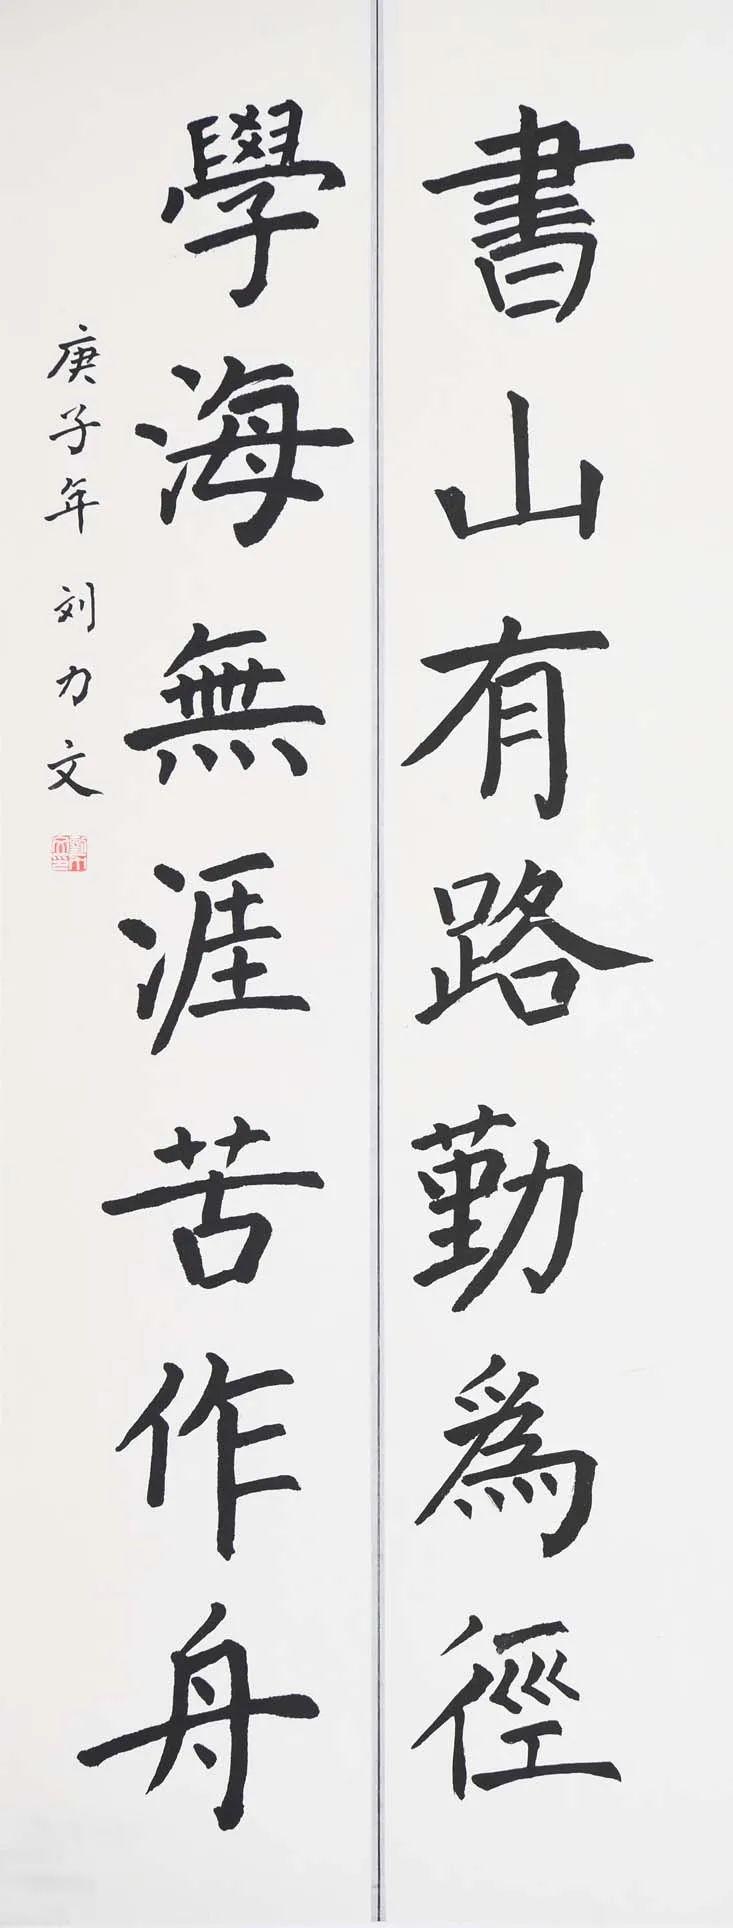 書山有路勤為徑
學海無涯苦作舟
庚子年 刘力文